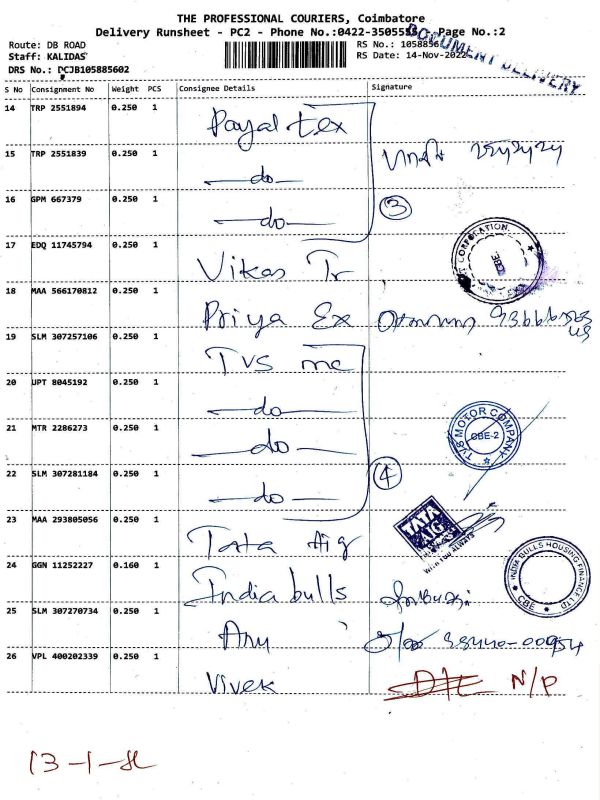 THE PROFESSIONAL COURIERS, Coimbatore
Delivery Runsheet - PC2 - Phone No.:0422-3505555 Page No.:2
Route: DB ROAD
Staff: KALIDAS
DRS No.: DCJB105885602
RS No.: 1058856
RS Date: 14-Nov-2022
DOCUMENT DELIVERY
S No Consignment No Weight PCS Consignee Details Signature
14 TRP 2551894 0.250 1 Payal tex
15 TRP 2551839 0.250 1 do
16 GPM 667379 0.250 1 do
3
17 EDQ 11745794 0.250 1 Vikas Tr
CORPORATION
18 MAA 566170812 0.250 1 Priya Ex
19 SLM 307257106 0.250 1 TVS mc
20 UPT 8045192 0.250 1 do
21 MTR 2286273 0.250 1 do
TVS MOTOR COMPANY
CBE-2
22 SLM 307281184 0.250 1 do
4
23 MAA 293805056 0.250 1 Tata Aig
TATA
AIG
WITH YOU ALWAYS
24 GGN 11252227 0.160 1 India bulls
INDIA BULLS HOUSING FINANCE LTD
CBE
25 SLM 307270734 0.250 1 Anu
26 VPL 400202339 0.250 1 Vivek
N/P